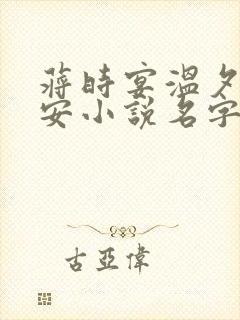 蒋時宴溫夕
安小説名字
古亞偉